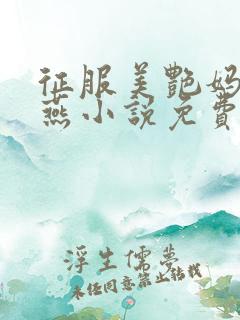 征服美艷妈
燕小說免費
浮生儒夢
未经同意禁止转载